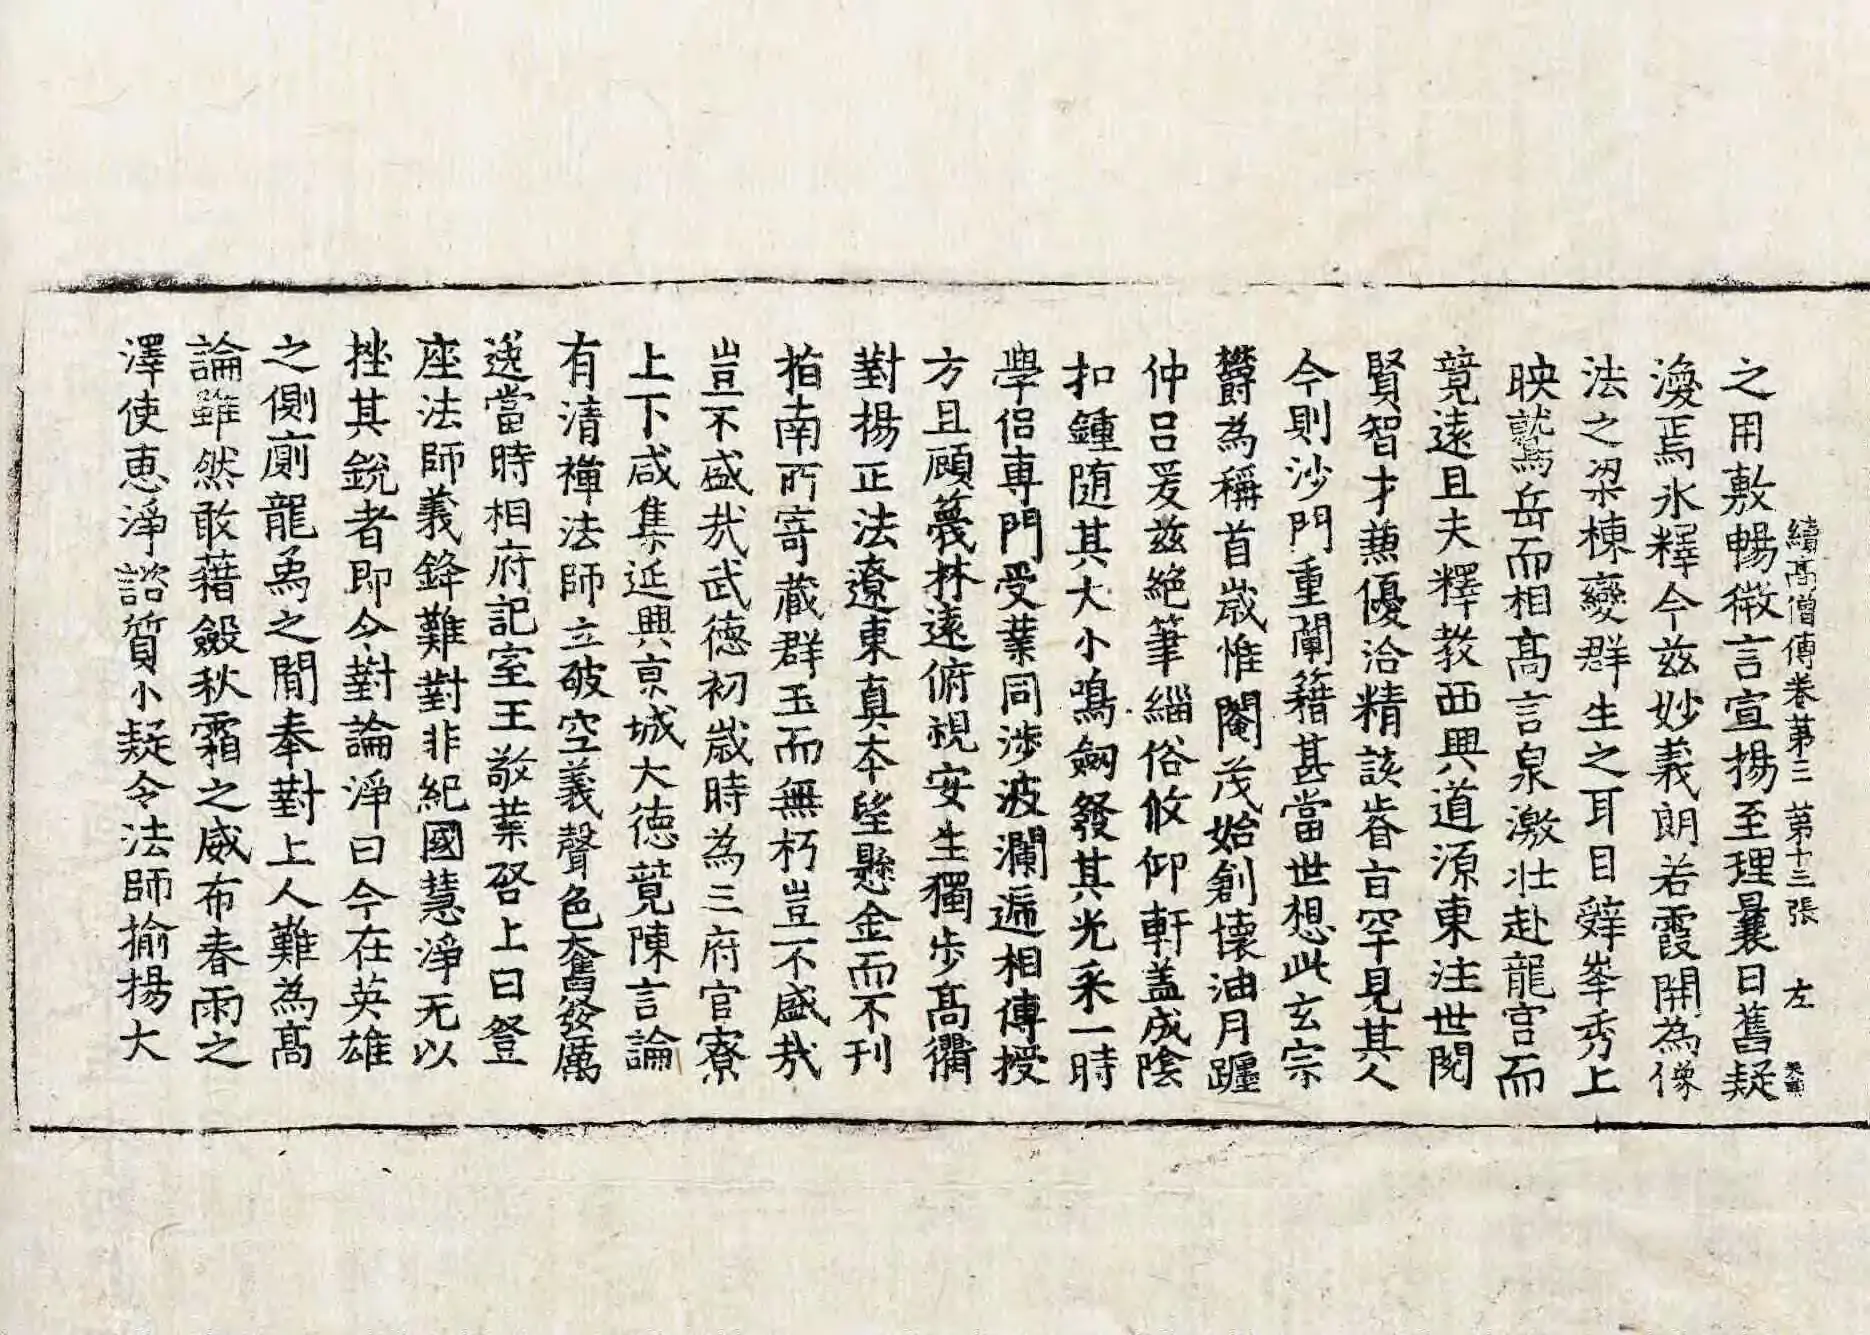 續高僧傳卷第三　第十三張　左
之用敷暢微言宣揚至理曩日舊疑
渙焉氷釋今玆妙義朗若霞開為像
法之梁棟變群生之耳目辤峯秀上
映鷲岳而相髙言泉激壯赴龍宮而
竟遠且夫釋教西興道源東注世閱
賢智才兼優洽精該睿旨罕見其人
今則沙門重闡籍甚當世想此玄宗
欝為稱首歲惟閹茂始創懷油月躔
仲呂爰玆絕筆緇俗攸仰軒盖成陰
扣鍾隨其大小鳴劒發其光采一時
學侶専門受業同渉波瀾遍相傳授
方且顧蔑林遠俯視安生獨步髙衢
對揚正法遼東真夲望懸金而不刊
指南所寄藏群玉而無朽豈不盛㢤
豈不盛㢤武德初歲時為三府官寮
上下咸集延興亰城大德竟陳言論
有清禪法師立破空義聲色奮發厲
逸當時相府記室王敬業啓上曰登
座法師義鋒難對非紀國慧淨无以
挫其銳者即令對論淨曰今在英雄
之側廁龍象之間奉對上人難為髙
論雖然敢藉斂秋霜之威布春雨之
澤使惠淨諮質小疑令法師揄揚大